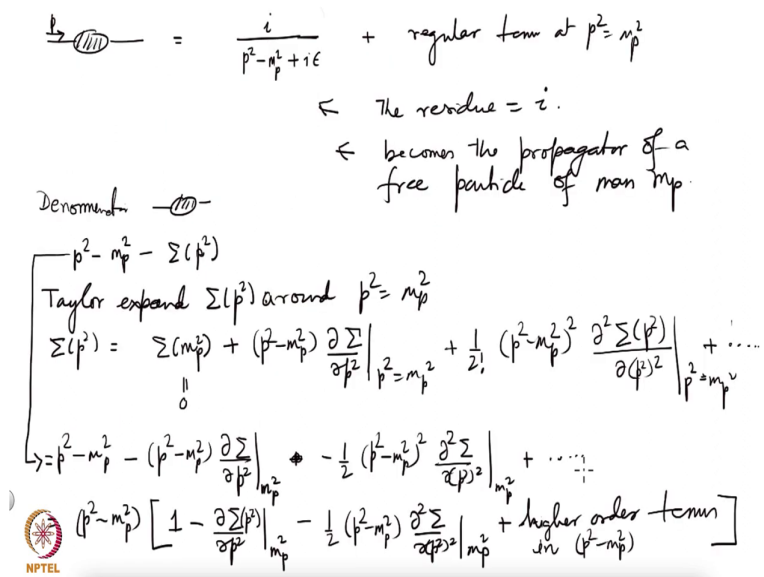 p = i / (p² − m_p² + iϵ) + regular term at p² = m_p²
← The residue = i.
← becomes the propagator of a
free particle of mass m_p.
Denominator
p² − m_p² − Σ(p²)
Taylor expand Σ(p²) around p² = m_p²
Σ(p²) = Σ(m_p²) + (p² − m_p²) ∂Σ/∂p² |_{p² = m_p²} + 1/2! (p² − m_p²)² ∂²Σ(p²)/∂(p²)² |_{p² = m_p²} + ....
||
0
= p² − m_p² − (p² − m_p²) ∂Σ/∂p² |_{m_p²} − 1/2 (p² − m_p²)² ∂²Σ/∂(p²)² |_{m_p²} + ....
(p² − m_p²) [ 1 − ∂Σ(p²)/∂p² |_{m_p²} − 1/2 (p² − m_p²) ∂²Σ/∂(p²)² |_{m_p²} + higher order terms in (p² − m_p²) ]
NPTEL